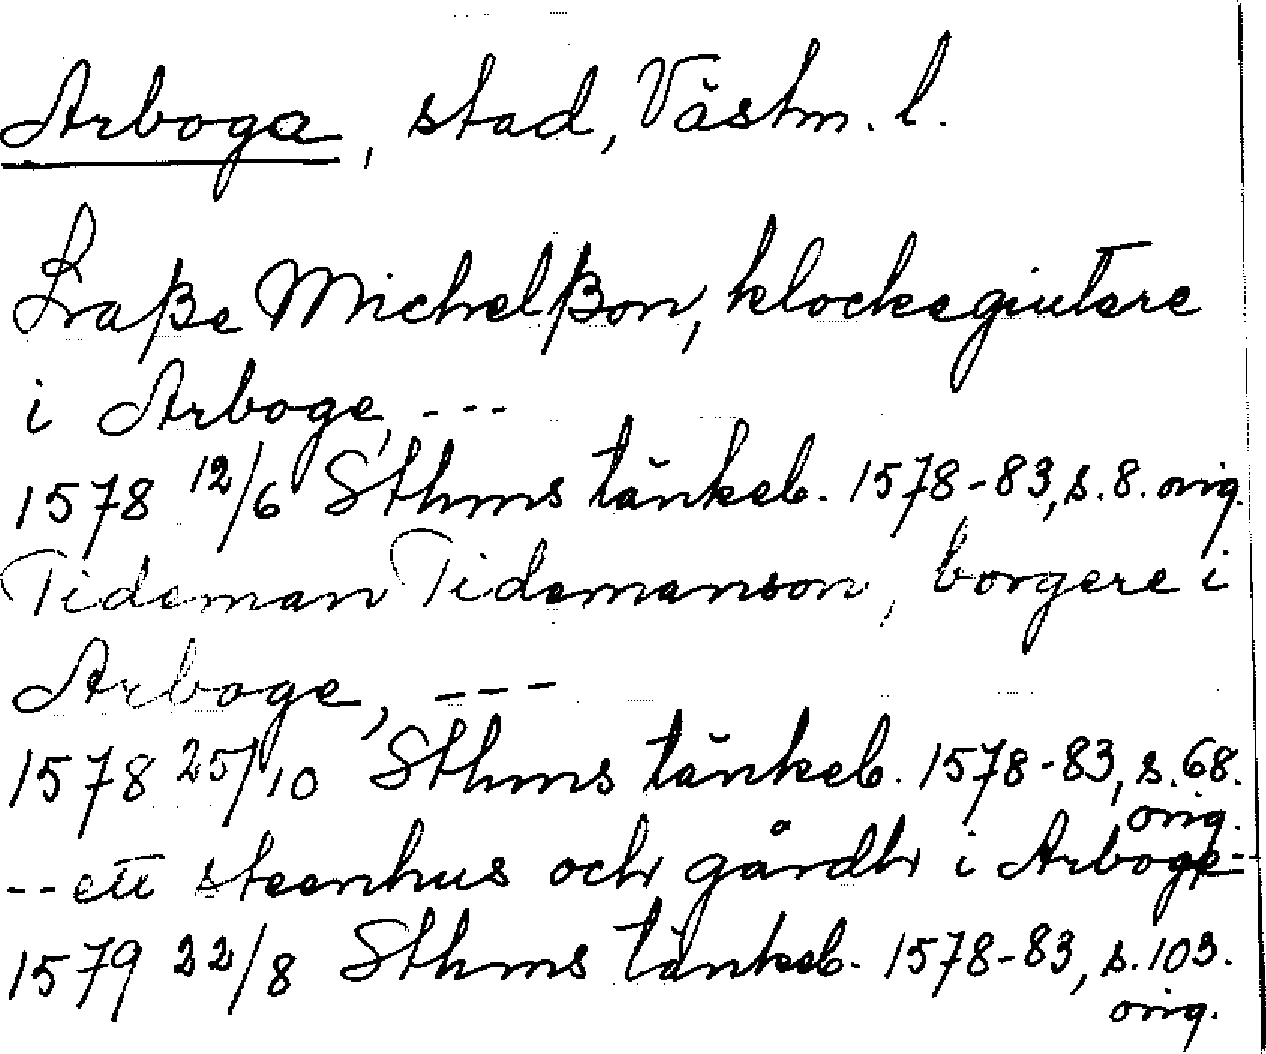 Arboga, stad, Västm. l.
Laße Michelßon, klockegiutere
i Arboge, ---
1578 12/6 Sthms tänkeb. 1578-83, s. 8. orig.
Tideman Tidemanson, borgere i
Arboge, ---
1578 25/10 Sthms tänkeb. 1578-83, s. 68.
orig.
-- ett steenhus och gårdh i Arboge --
1579 22/8 Sthms tänkeb. 1578-83, s. 103.
orig.